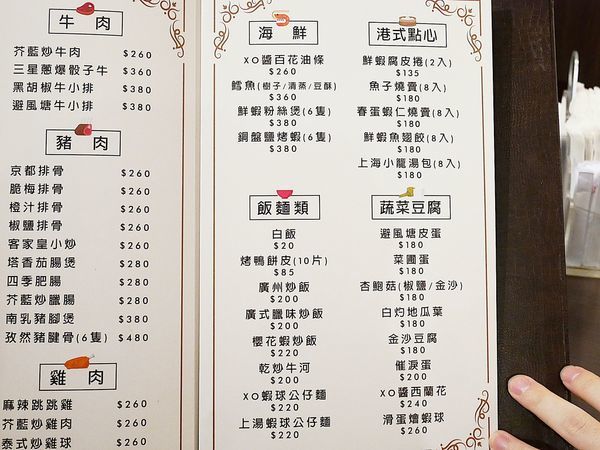 牛肉
芥藍炒牛肉 $260
三星蔥爆骰子牛 $360
黑胡椒牛小排 $380
避風塘牛小排 $380
豬肉
京都排骨 $260
脆梅排骨 $260
橙汁排骨 $260
椒鹽排骨 $260
客家皇小炒 $260
塔香茄腸煲 $280
四季肥腸 $280
芥藍炒臘腸 $280
南乳豬腳煲 $380
孜然豬腱骨(6隻) $480
雞肉
麻辣跳跳雞 $260
芥藍炒雞肉 $260
泰式炒雞球 $260
海鮮
XO醬百花油條
$260
鱈魚(樹子/清蒸/豆酥)
$360
鮮蝦粉絲煲(6隻)
$380
鋼盤鹽烤蝦(6隻)
$380
飯麵類
白飯
$20
烤鴨餅皮(10片)
$85
廣州炒飯
$200
廣式臘味炒飯
$200
櫻花蝦炒飯
$200
乾炒牛河
$200
XO蝦球公仔麵
$220
上湯蝦球公仔麵
$220
港式點心
鮮蝦腐皮捲(2入)
$135
魚子燒賣(8入)
$180
春蛋蝦仁燒賣(8入)
$180
鮮蝦魚翅餃(8入)
$180
上海小龍湯包(8入)
$180
蔬菜豆腐
避風塘皮蛋
$180
菜圃蛋
$180
杏鮑菇(椒鹽/金沙)
$180
白灼地瓜葉
$180
金沙豆腐
$180
催淚蛋
$200
XO醬西蘭花
$240
滑蛋燴蝦球
$260